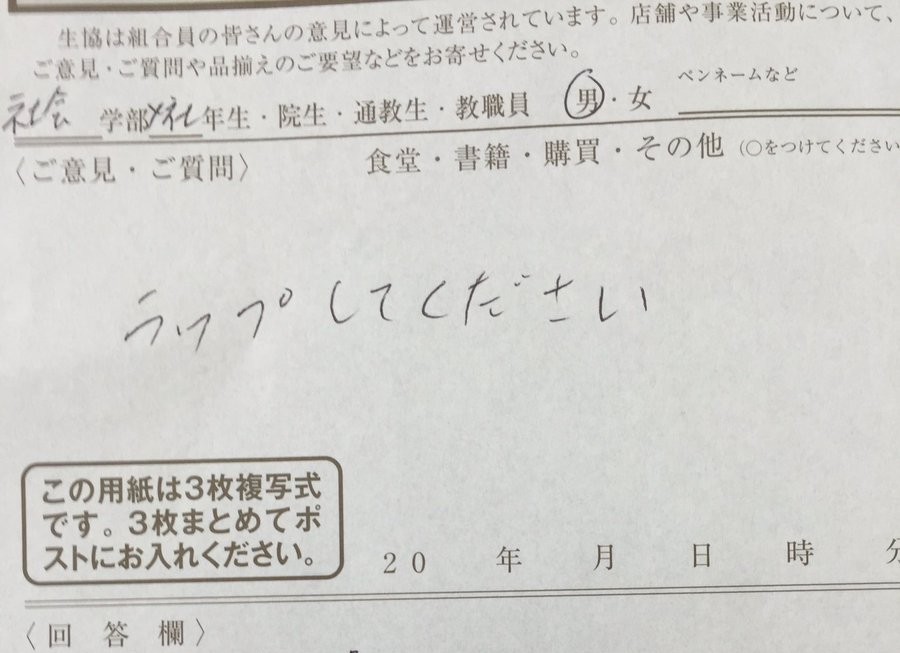 生協は組合員の皆さんの意見によって運営されています。店舗や事業活動について、
ご意見・ご質問や品揃えのご要望などをお寄せください。
社会 学部 メ社 年生・院生・通教生・教職員 男・女 ペンネームなど
〈ご意見・ご質問〉 食堂・書籍・購買・その他 (○をつけてください
ラップしてください
この用紙は3枚複写式
です。3枚まとめてポ
ストにお入れください。
20 年 月 日 時 分
〈回答欄〉